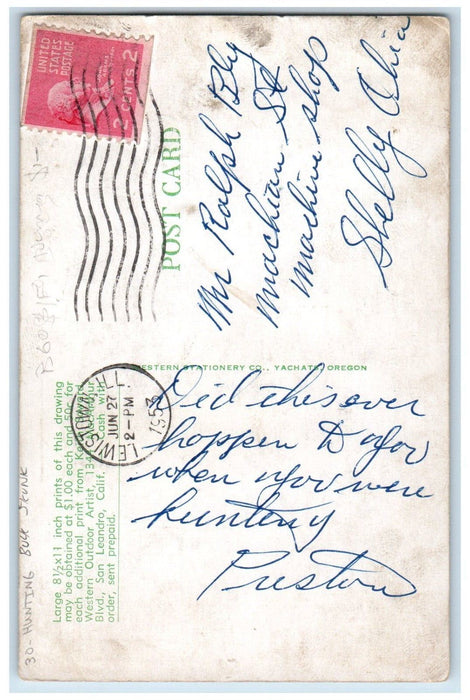 UNITED STATES
POSTAGE
2 CENTS 2
POST CARD
LEWISTOWN, ILL.
JUN 27
2 - PM
1953
Mr Ralph Bly
Machian St
Machine shop
Shelly Ohio
WESTERN STATIONERY CO., YACHATS, OREGON
Did this ever
happen to you
when you were
hunting
Preston
Large 8½x11 inch prints of this drawing
may be obtained at $1.00 each and 50c for
each additional print from
Western Outdoor Artist,
Blvd., San Leandro, Calif. Cash with
order, sent prepaid.
30-HUNTING BUCK SKUNK